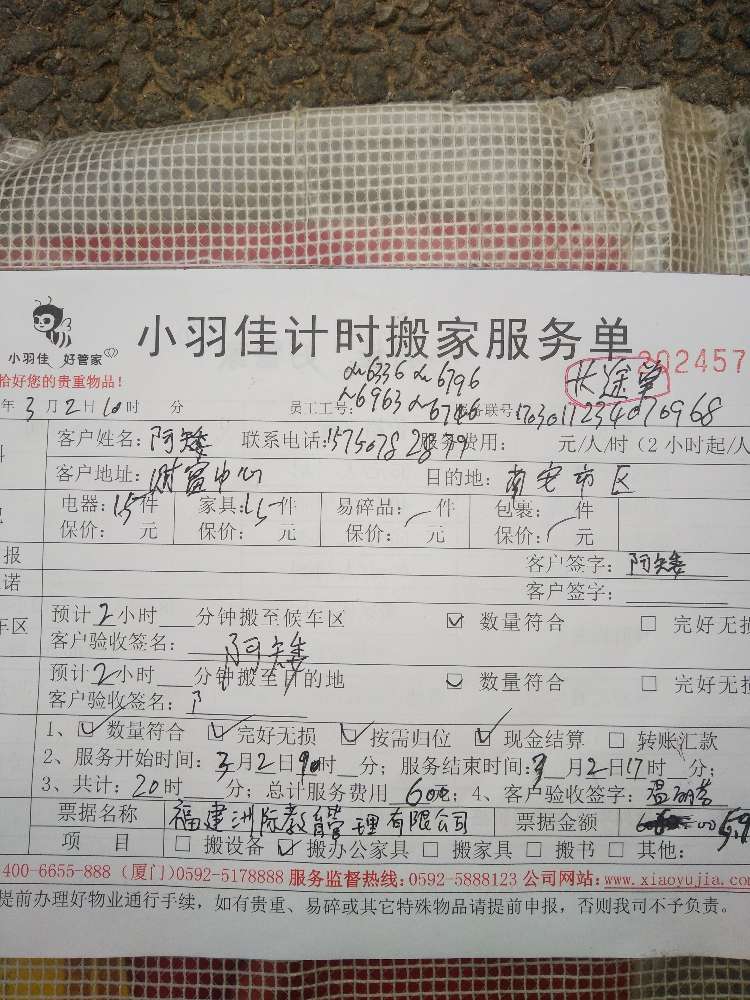 小羽佳 好管家
小羽佳计时搬家服务单
恰好您的贵重物品！
长途单
202457
6336 6796
6963 6746
年3月2日10时 分 员工工号： 服务联号：
客户姓名：阿矮 联系电话：15750782879 服务费用： 元/人/时（2小时起/人
客户地址：财富中心 目的地：南安市区
电器：15件 家具：15件 易碎品： 件 包裹： 件
保价： 元 保价： 元 保价： 元 保价： 元
报 客户签字：阿矮
诺 客户签字：
预计2小时 分钟搬至候车区 ☑ 数量符合 □ 完好无损
车区 客户验收签名：阿矮
预计2小时 分钟搬至目的地 ☑ 数量符合 □ 完好无损
客户验收签名：
1、☑ 数量符合 ☑ 完好无损 ☑ 按需归位 ☑ 现金结算 □ 转账汇款
2、服务开始时间：3月2日 时 分；服务结束时间：3月2日17时 分；
3、共计：20时 分；总计服务费用 600元；4、客户验收签字：
票据名称 福建洲际教育管理有限公司 票据金额
项 目 □ 搬设备 ☑ 搬办公家具 □ 搬家具 □ 搬书 □ 其他：
400-6655-888（厦门）0592-5178888 服务监督热线：0592-5888123 公司网站：www.xiaoyujia.com
提前办理好物业通行手续，如有贵重、易碎或其它特殊物品请提前申报，否则我司不予负责。